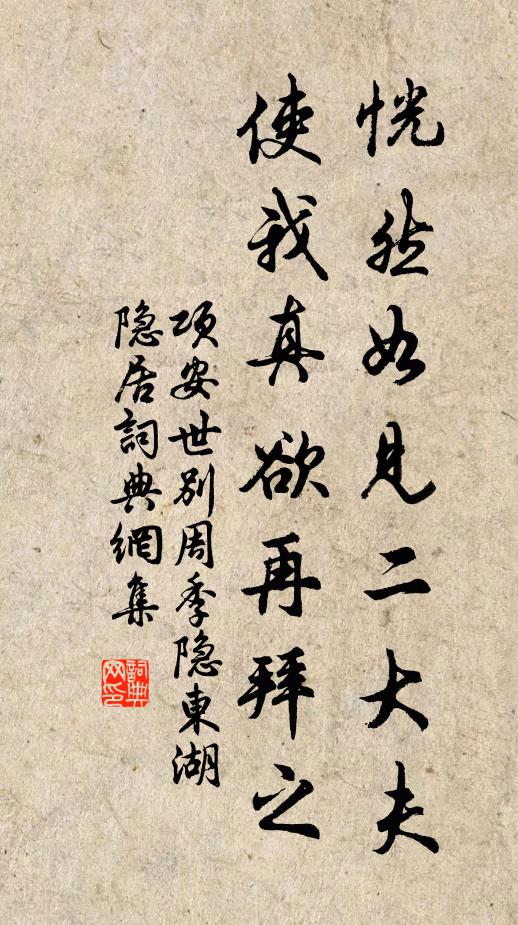 恍然如見二大夫
使我真欲再拜之
项安世别周季隐東湖
隐居詞典網集
詞典网印